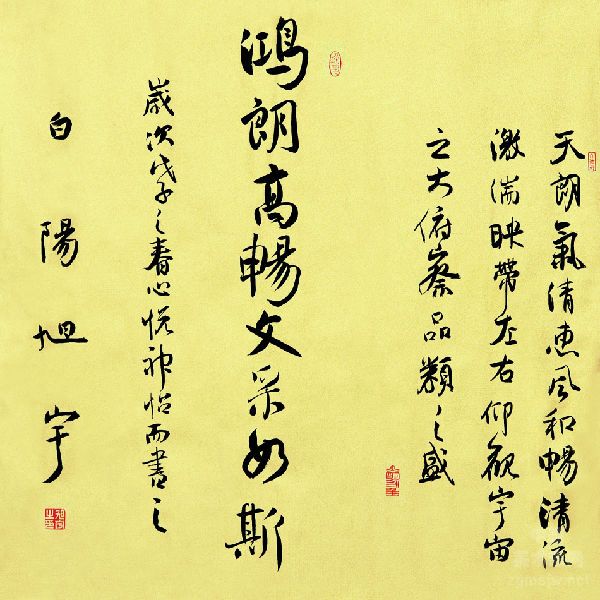 天朗氣清惠風和暢清流
激湍映帶左右仰觀宇宙
之大俯察品類之盛
鴻朗高暢文采如斯
歲次戊子之春心悅神怡而書之
白陽旭宇
zgmsjw.net